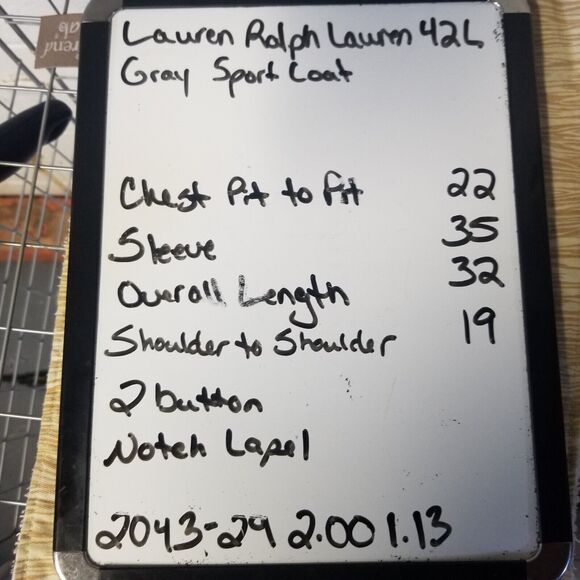 Lauren Ralph Lauren 42L
Gray Sport Coat
Chest Pit to Pit 22
Sleeve 35
Overall Length 32
Shoulder to Shoulder 19
2 button
Notch Lapel
2043-29 2.00 1.13